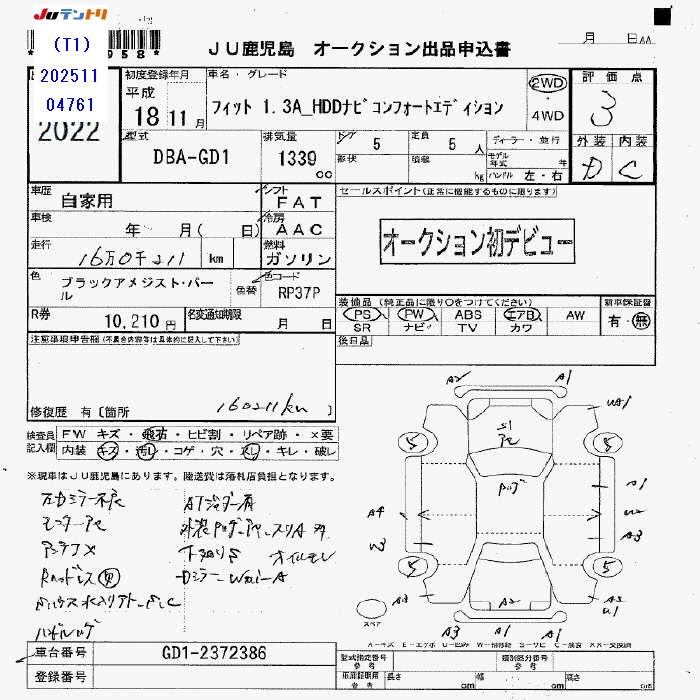 JUテントリ
(T1)
202511
04761
2022
JU鹿児島 オークション出品申込書
月 日
初度登録年月
平成
18 11月
車名・グレード
フィット 1.3A_HDDナビコンフォートエディション
2WD
・
4WD
評価点
3
外装 内装
D C
型式
DBA-GD1
排気量
1339
cc
ドア 5
形状
定員 5 人
積載 kg
ディーラー・並行
モデル年式 年
ハンドル 左・右
車歴
自家用
シフト
FAT
車検
年 月( 日)
冷房
AAC
走行
16万0千211 km
燃料
ガソリン
色
ブラックアメジスト・パール
色替
色コード
RP37P
R券
10,210円
名変通知期限
月 日
セールスポイント(正常に機能するものに限ります)
オークション初デビュー
装備品(純正品に限り○をつけてください)
PS PW ABS エアB AW
SR ナビ TV カワ
新車保証書
有・無
後日品
注意事項申告欄(不具合内容等は具体的に記入して下さい)
160211km
修復歴 有〔箇所 〕
検査員記入欄
FW キズ・飛石・ヒビ割・リペア跡・×要
内装 キズ・汚レ・コゲ・穴・スレ・キレ・破レ
※現車はJU鹿児島にあります。陸送費は落札店負担となります。
左ドミラー不良
ATジャダー有
アンテナX
下廻りS
オイルモレ
車台番号
GD1-2372386
登録番号
A2 A1
UA1
S1
5 5
A4
A1
U2
A3
W3
5 5
A3
A2
A2
U1
A3 A1 A1
スペア
A=キズ E=エクボ U=凹み W=補修跡 S=サビ C=腐食 XX=交換済
型式指定番号
参考
類別区分番号
参考
車庫証明用
参考
長さ cm
幅 cm
高さ cm